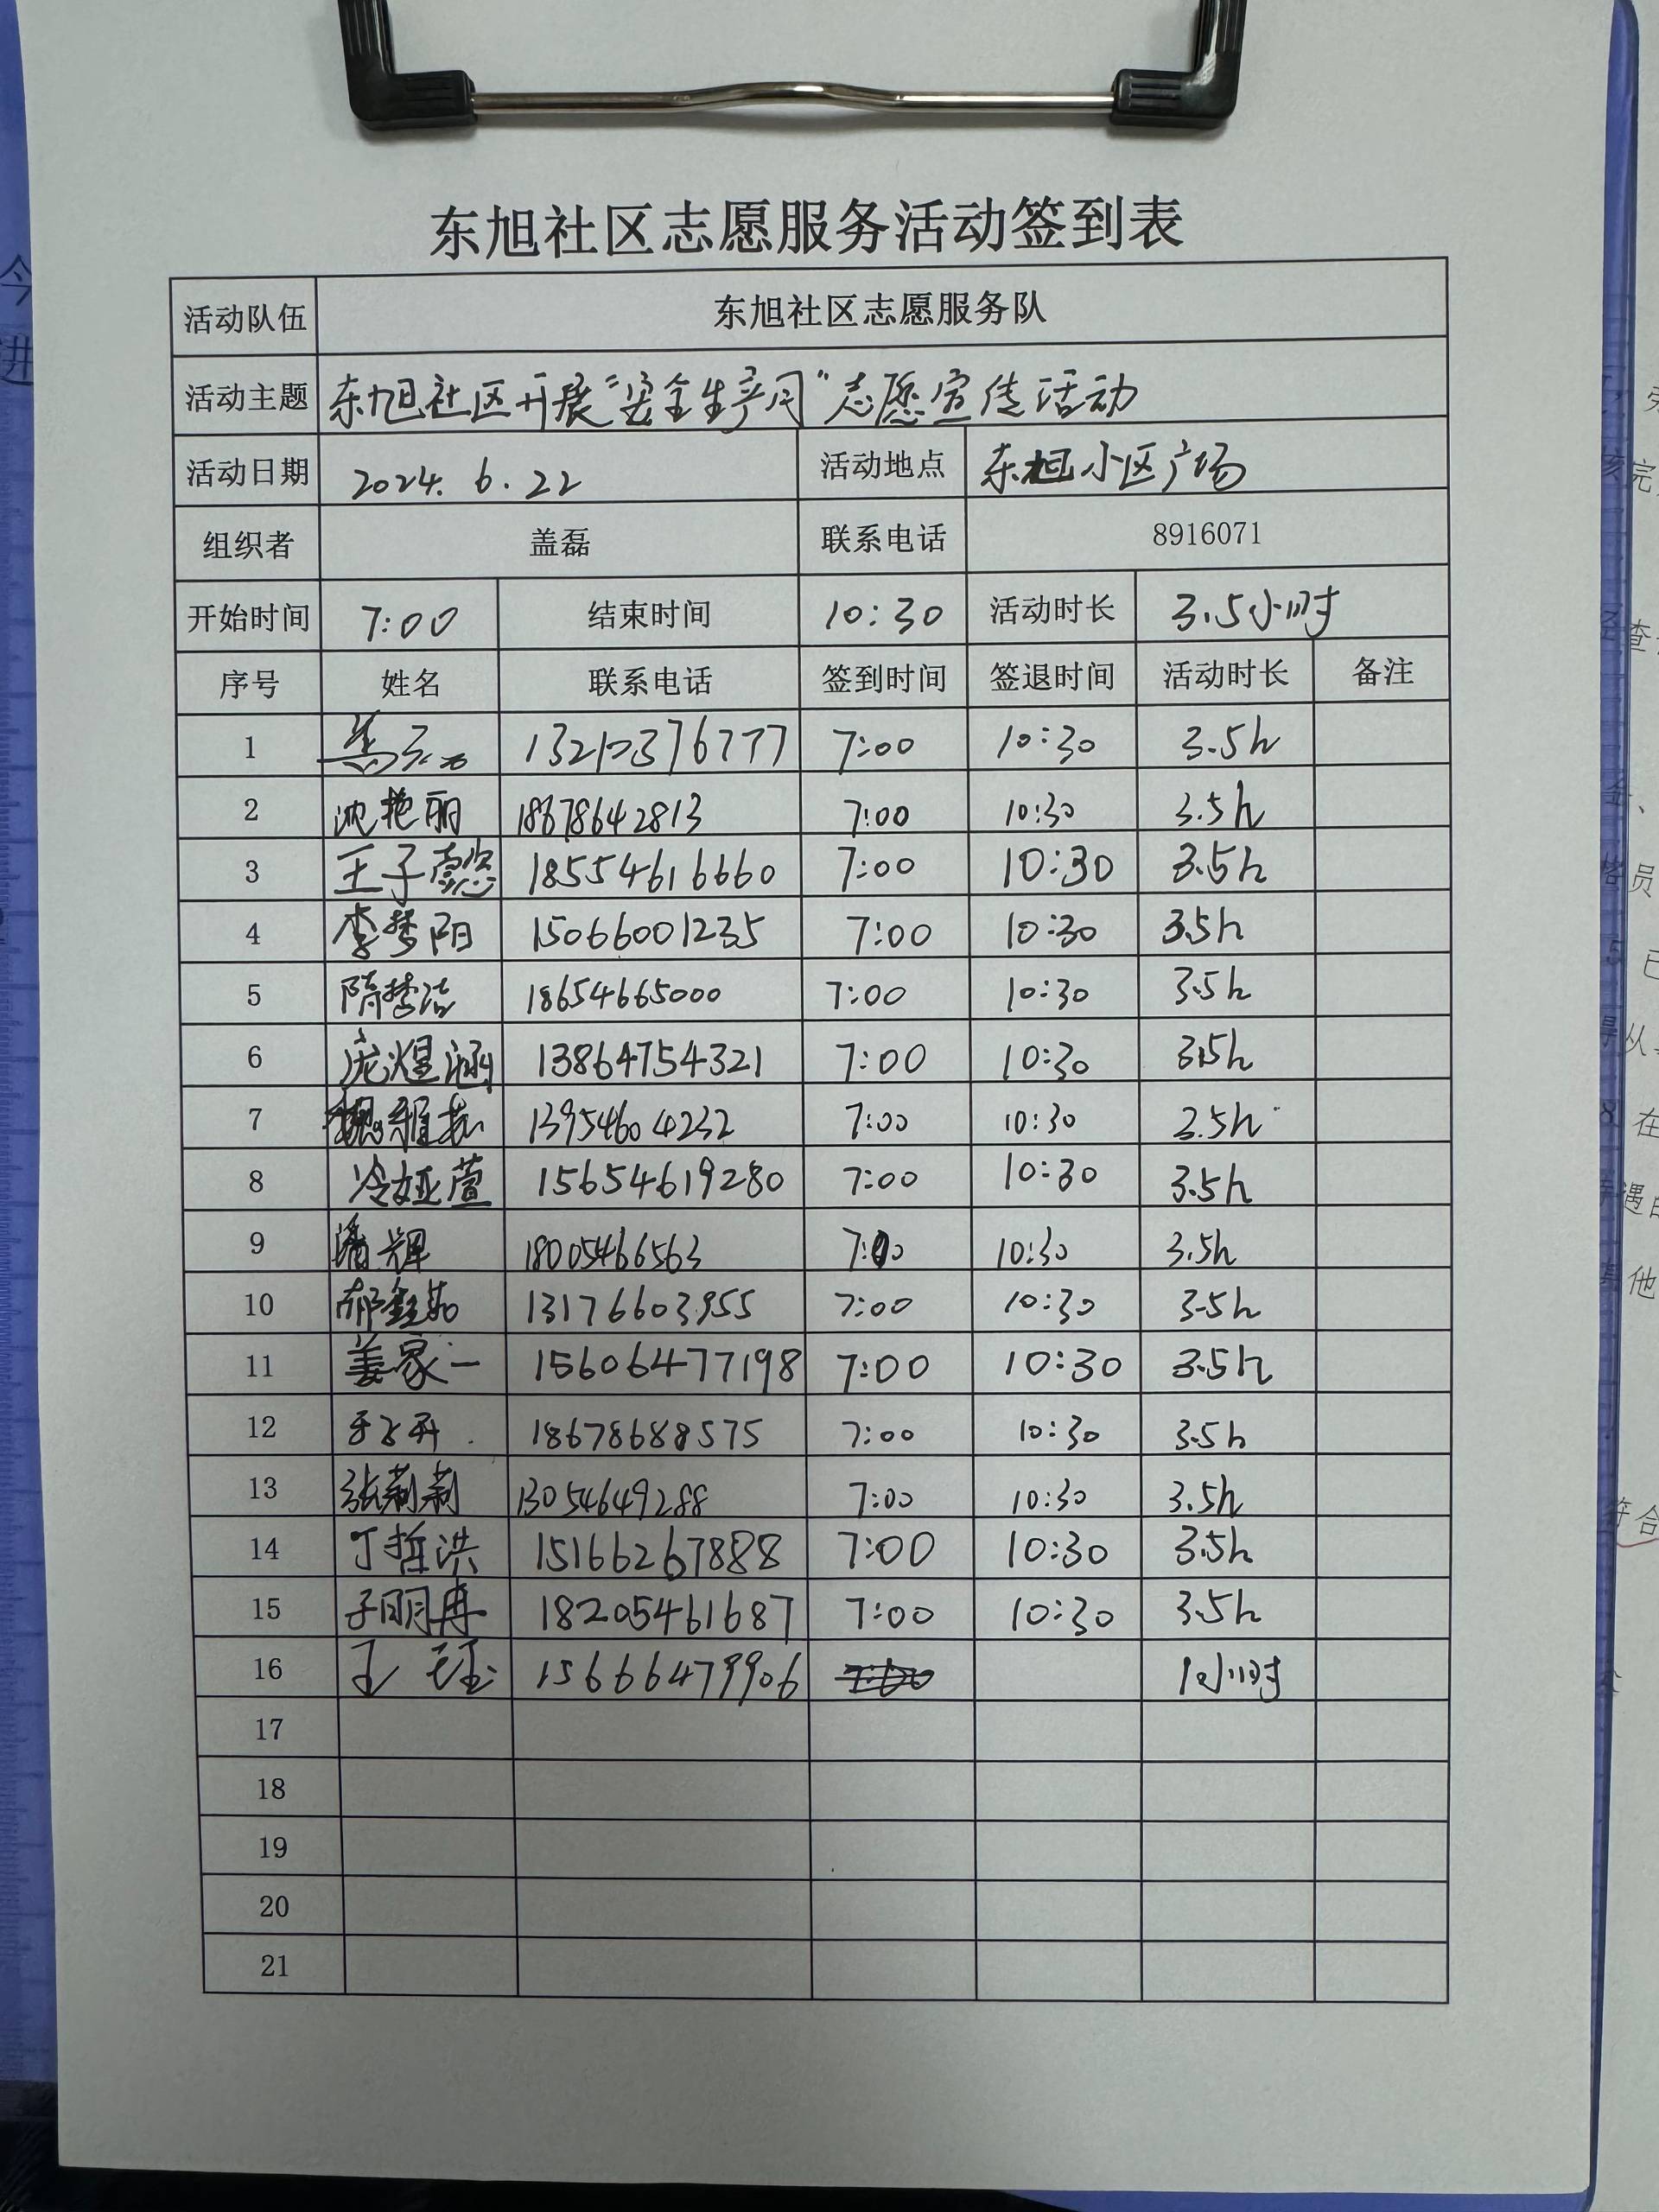 东旭社区志愿服务活动签到表
活动队伍 东旭社区志愿服务队
活动主题 东旭社区开展“安全生产月”志愿宣传活动
活动日期 2024.6.22 活动地点 东旭小区广场
组织者 盖磊 联系电话 8916071
开始时间 7:00 结束时间 10:30 活动时长 3.5小时
序号 姓名 联系电话 签到时间 签退时间 活动时长 备注
1 7:00 10:30 3.5h
2 沈艳丽 18678642813 7:00 10:30 3.5h
3 王子懿 18554616660 7:00 10:30 3.5h
4 李梦阳 15066001235 7:00 10:30 3.5h
5 隋梦洁 18654665000 7:00 10:30 3.5h
6 庞煜涵 13864754321 7:00 10:30 3.5h
7 13954604232 7:00 10:30 3.5h
8 冷娅萱 15654619280 7:00 10:30 3.5h
9 潘辉 18005466563 7:00 10:30 3.5h
10 13176603955 7:00 10:30 3.5h
11 姜家一 15606477198 7:00 10:30 3.5h
12 18678688575 7:00 10:30 3.5h
13 张莉莉 13054649288 7:00 10:30 3.5h
14 丁哲洪 15166267888 7:00 10:30 3.5h
15 18205461687 7:00 10:30 3.5h
16 王珏 15666479906 1小时
17
18
19
20
21